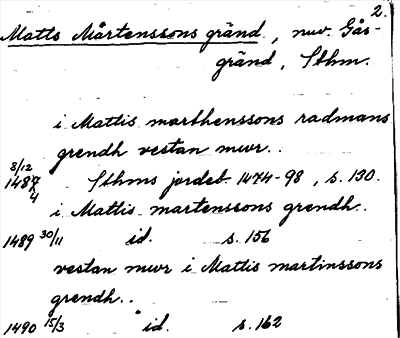 2.
Matts Mårtenssons gränd., nuv. Gås-
gränd, Sthm.
i Mattis marthenssons radmans
grendh vestan mwr..
8/12
1487 Sthms jordeb. 1474-98, s. 130.
4
i Mattis martenssons grendh..
1489 30/11 id. s. 156
vestan mwr i Mattis martinssons
grendh..
1490 15/3 id. s. 162